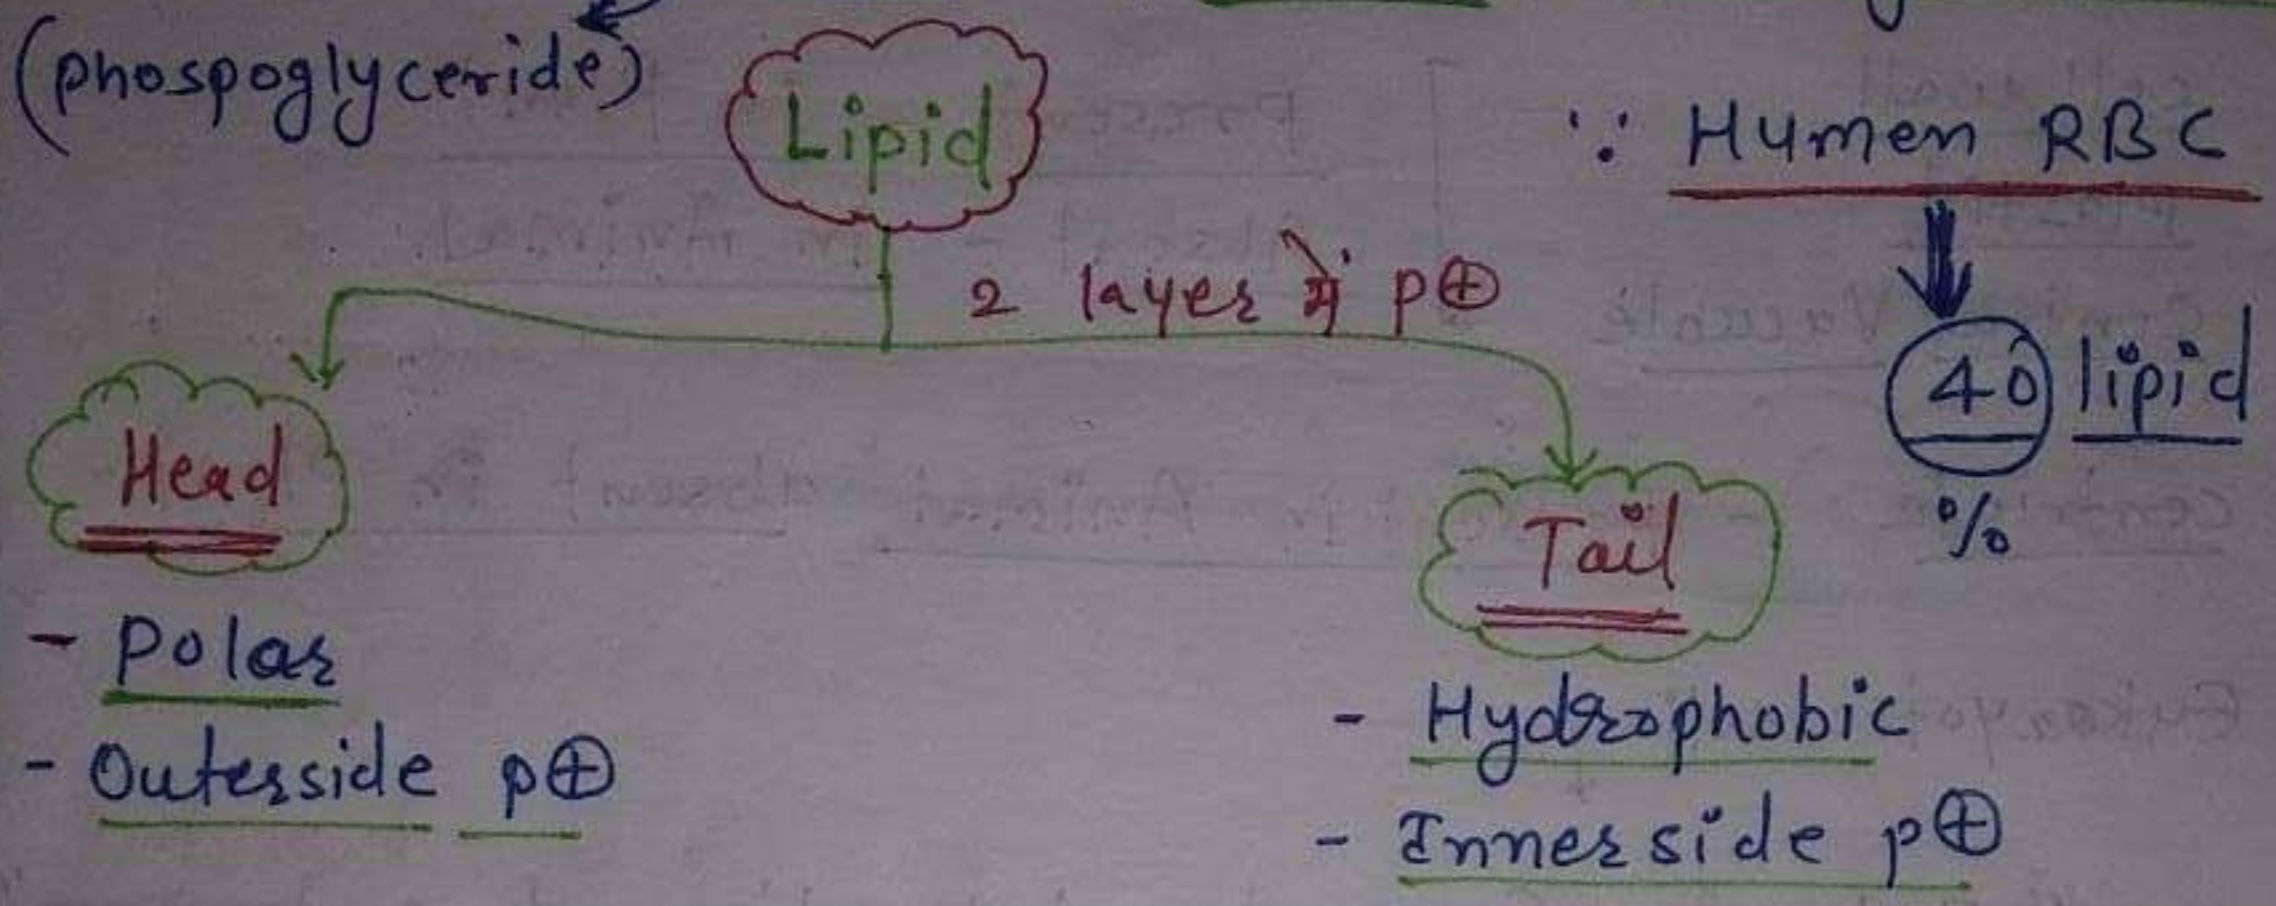 (phospoglyceride)
Lipid
∵ Humen RBC
2 layer में p⊕
40 lipid
%
Head
Tail
- Polar
- Outerside p⊕
- Hydrophobic
- Innerside p⊕